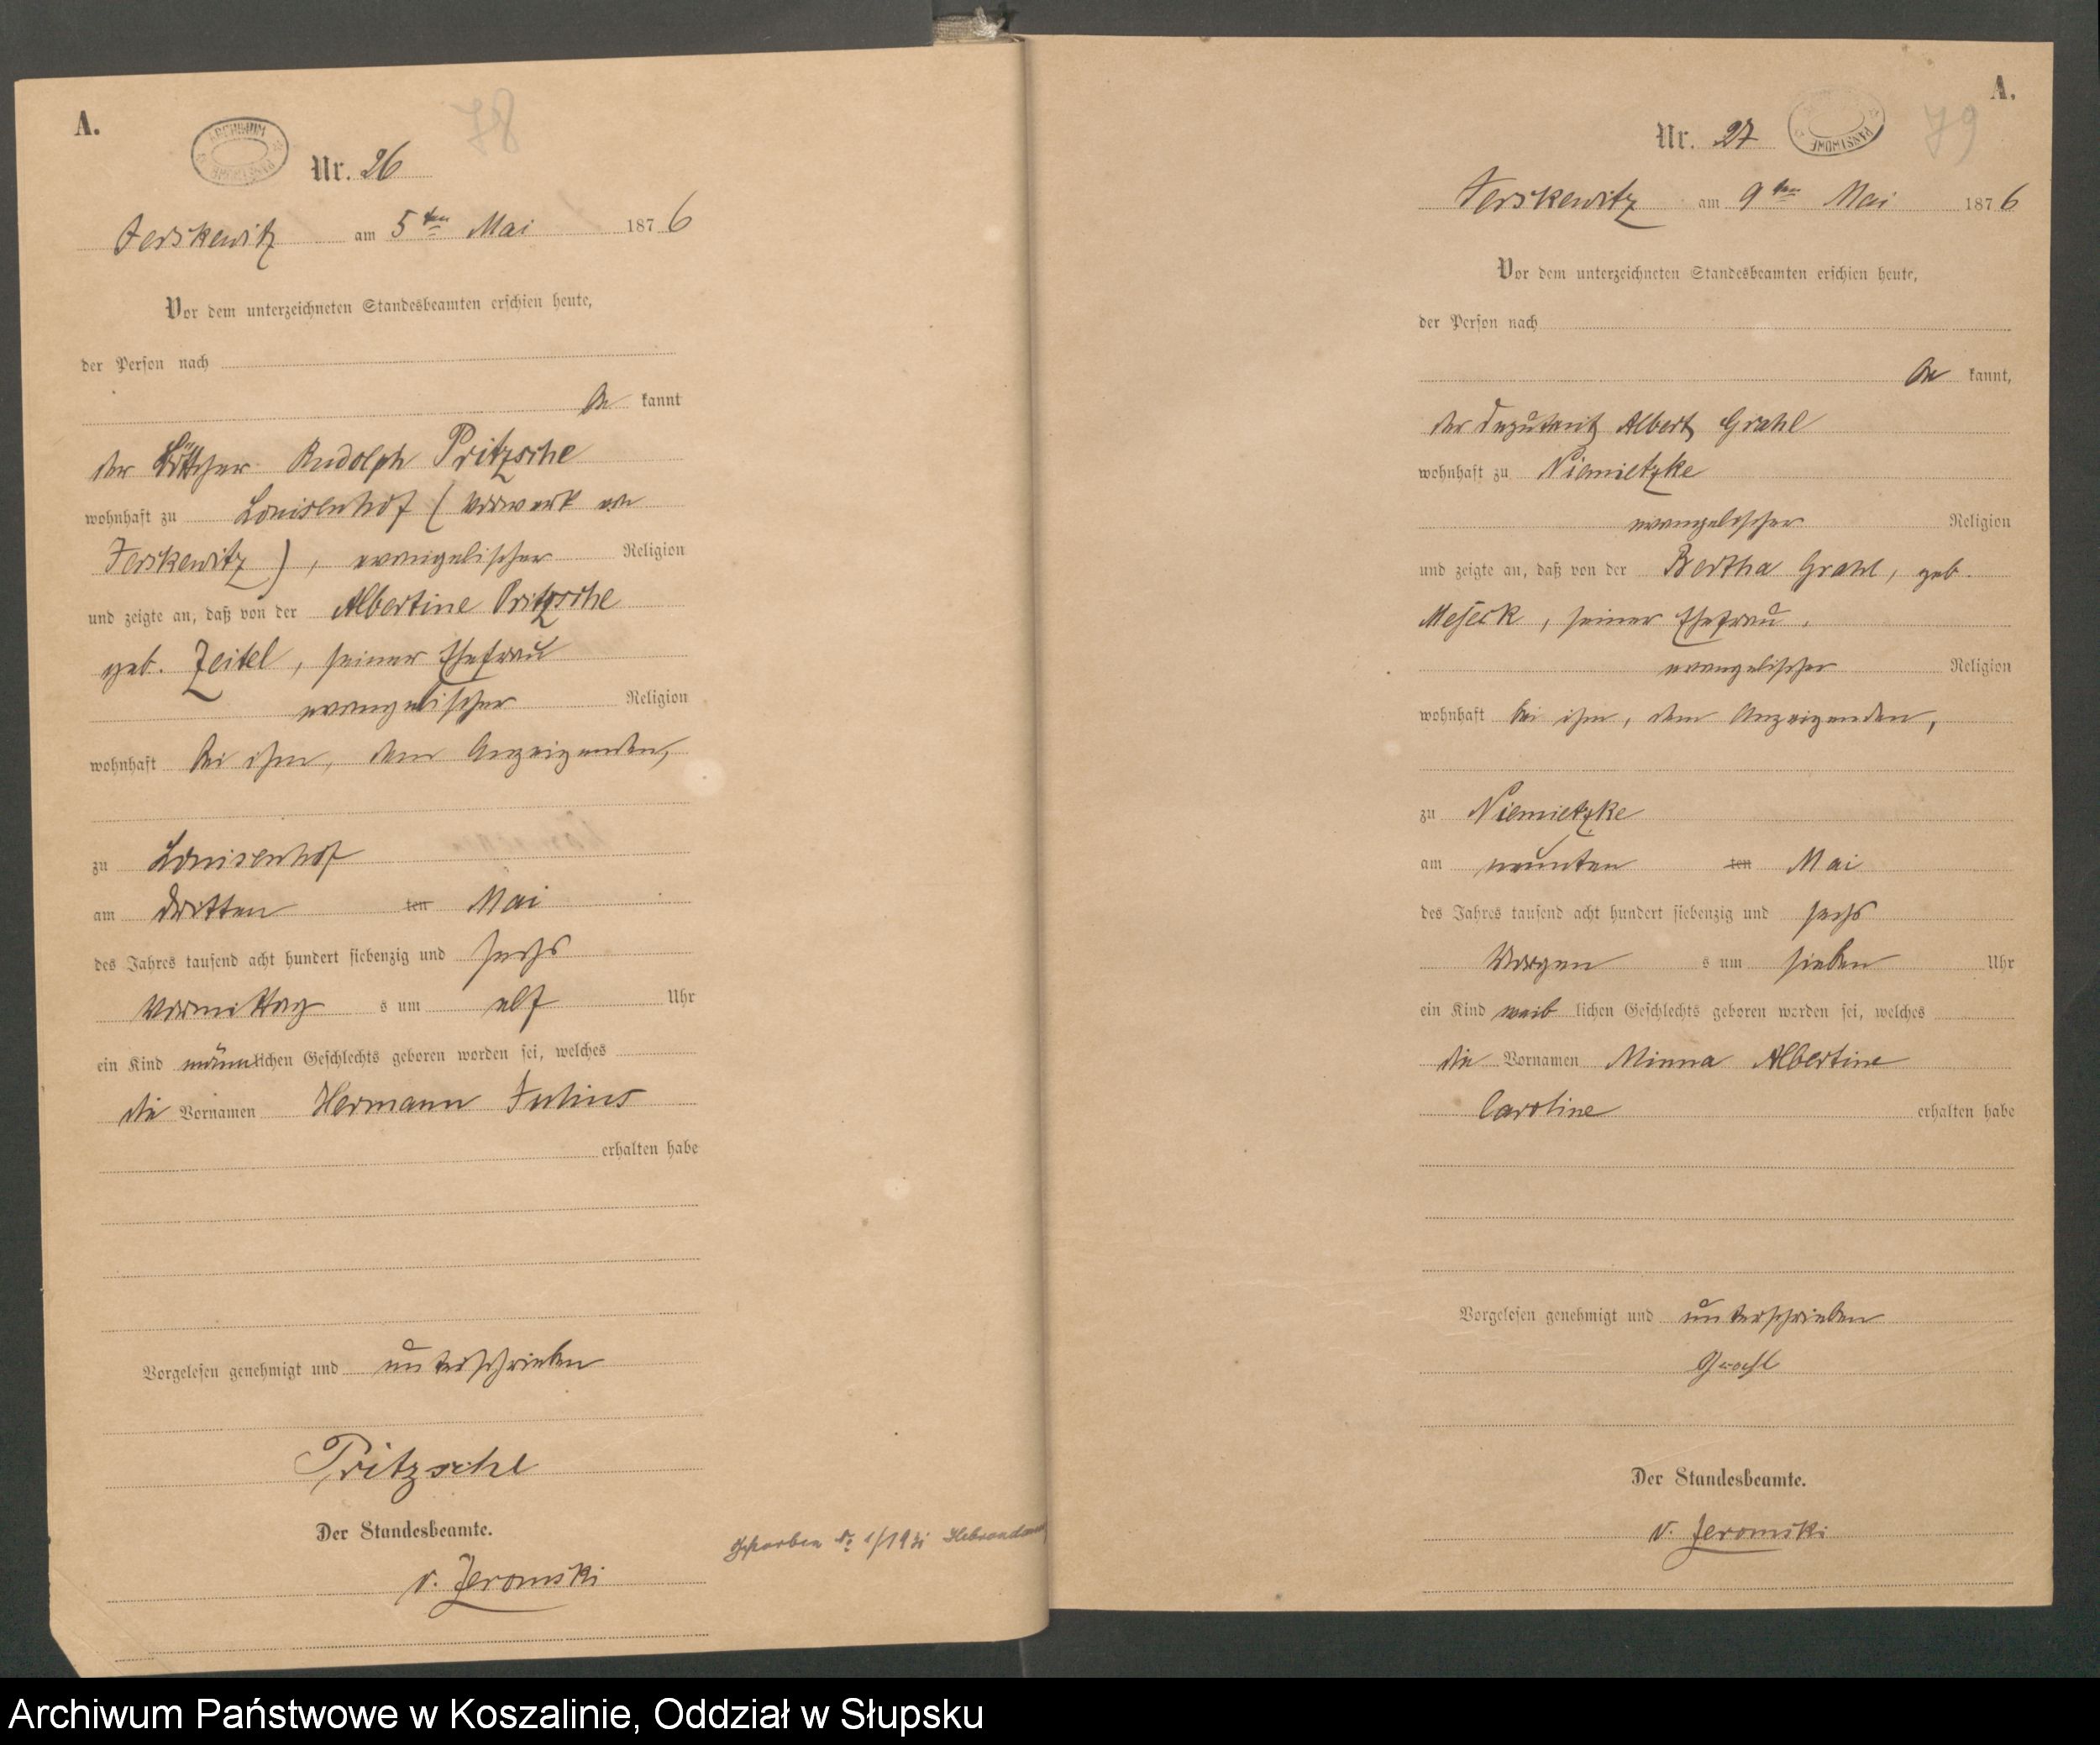 A.
ARCHIWUM PAŃSTWOWE
78
Nr. 26
Jerskewitz am 5ten Mai 1876
Vor dem unterzeichneten Standesbeamten erschien heute,
der Person nach
be kannt
der Böttcher Rudolph Pritzsche
wohnhaft zu Louisenhof (Vorwerk von
Jerskewitz), evangelischer Religion
und zeigte an, daß von der Albertine Pritzsche
geb. Zeitel, seiner Ehefrau
evangelischer Religion
wohnhaft bei ihm, dem Anzeigenden,
zu Louisenhof
am dritten ten Mai
des Jahres tausend acht hundert siebenzig und sechs
Vormittag s um elf Uhr
ein Kind männlichen Geschlechts geboren worden sei, welches
die Vornamen Hermann Julius
erhalten habe
Vorgelesen genehmigt und unterschrieben
Pritzsche
Der Standesbeamte.
v. Jeromski
Gestorben
A.
PAŃSTWOWE
79
Nr. 27
Jerskewitz am 9ten Mai 1876
Vor dem unterzeichneten Standesbeamten erschien heute,
der Person nach
be kannt,
der Deputant Albert Grahl
wohnhaft zu Niemietzke
evangelischer Religion
und zeigte an, daß von der Bertha Grahl, geb.
Meseck, seiner Ehefrau,
evangelischer Religion
wohnhaft bei ihm, dem Anzeigenden,
zu Niemietzke
am neunten ten Mai
des Jahres tausend acht hundert siebenzig und sechs
Morgen s um sieben Uhr
ein Kind weib lichen Geschlechts geboren worden sei, welches
die Vornamen Minna Albertine
Caroline erhalten habe
Vorgelesen genehmigt und unterschrieben
Grahl
Der Standesbeamte.
v. Jeromski
Archiwum Państwowe w Koszalinie, Oddział w Słupsku